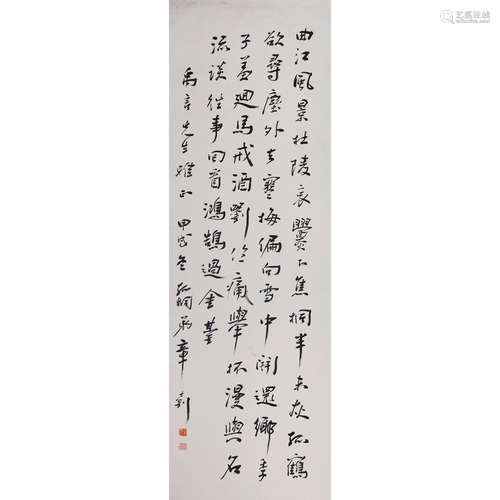 艺狐在线
曲江風景杜陵哀爨下焦桐半未灰孤鶴
欲尋塵外去寒梅偏向雪中開還鄉季
子羞迴馬戒酒劉伶痛舉杯漫與名
流談往事回首鴻鵠過金臺
禹言先生雅正 甲戌冬 孤桐弟章士釗